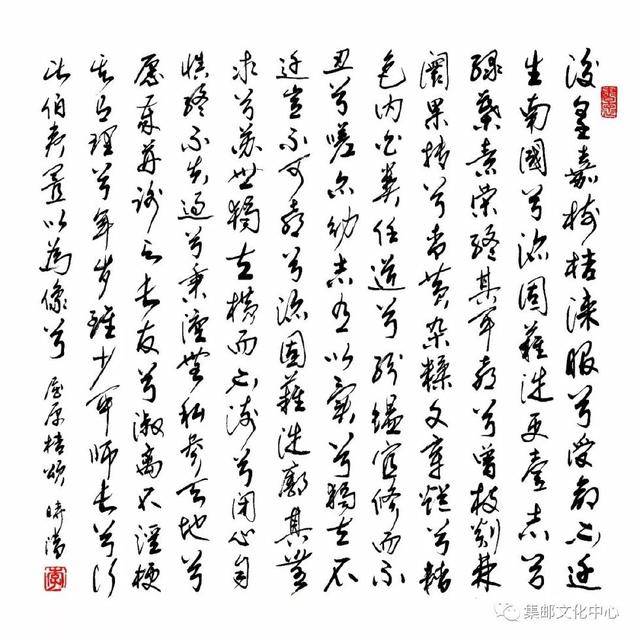 後皇嘉樹桔徠服兮受命不迁
生南國兮深固難徙更壹志兮
綠葉素榮終其可喜兮曾枝剡棘
圓果摶兮青黃杂糅文章爛兮精
色內白類任道兮紛緼宜修而不
丑兮嗟尔幼志有以異兮獨立不
迁豈不可喜兮深固難徙廓其無
求兮蘇世獨立橫而不流兮閉心自
慎終不失過兮秉德無私參天地兮
愿歲并謝與長友兮淑離不淫梗
其有理兮年岁雖少可師長兮行
比伯夷置以為像兮 屈原桔頌
集邮文化中心